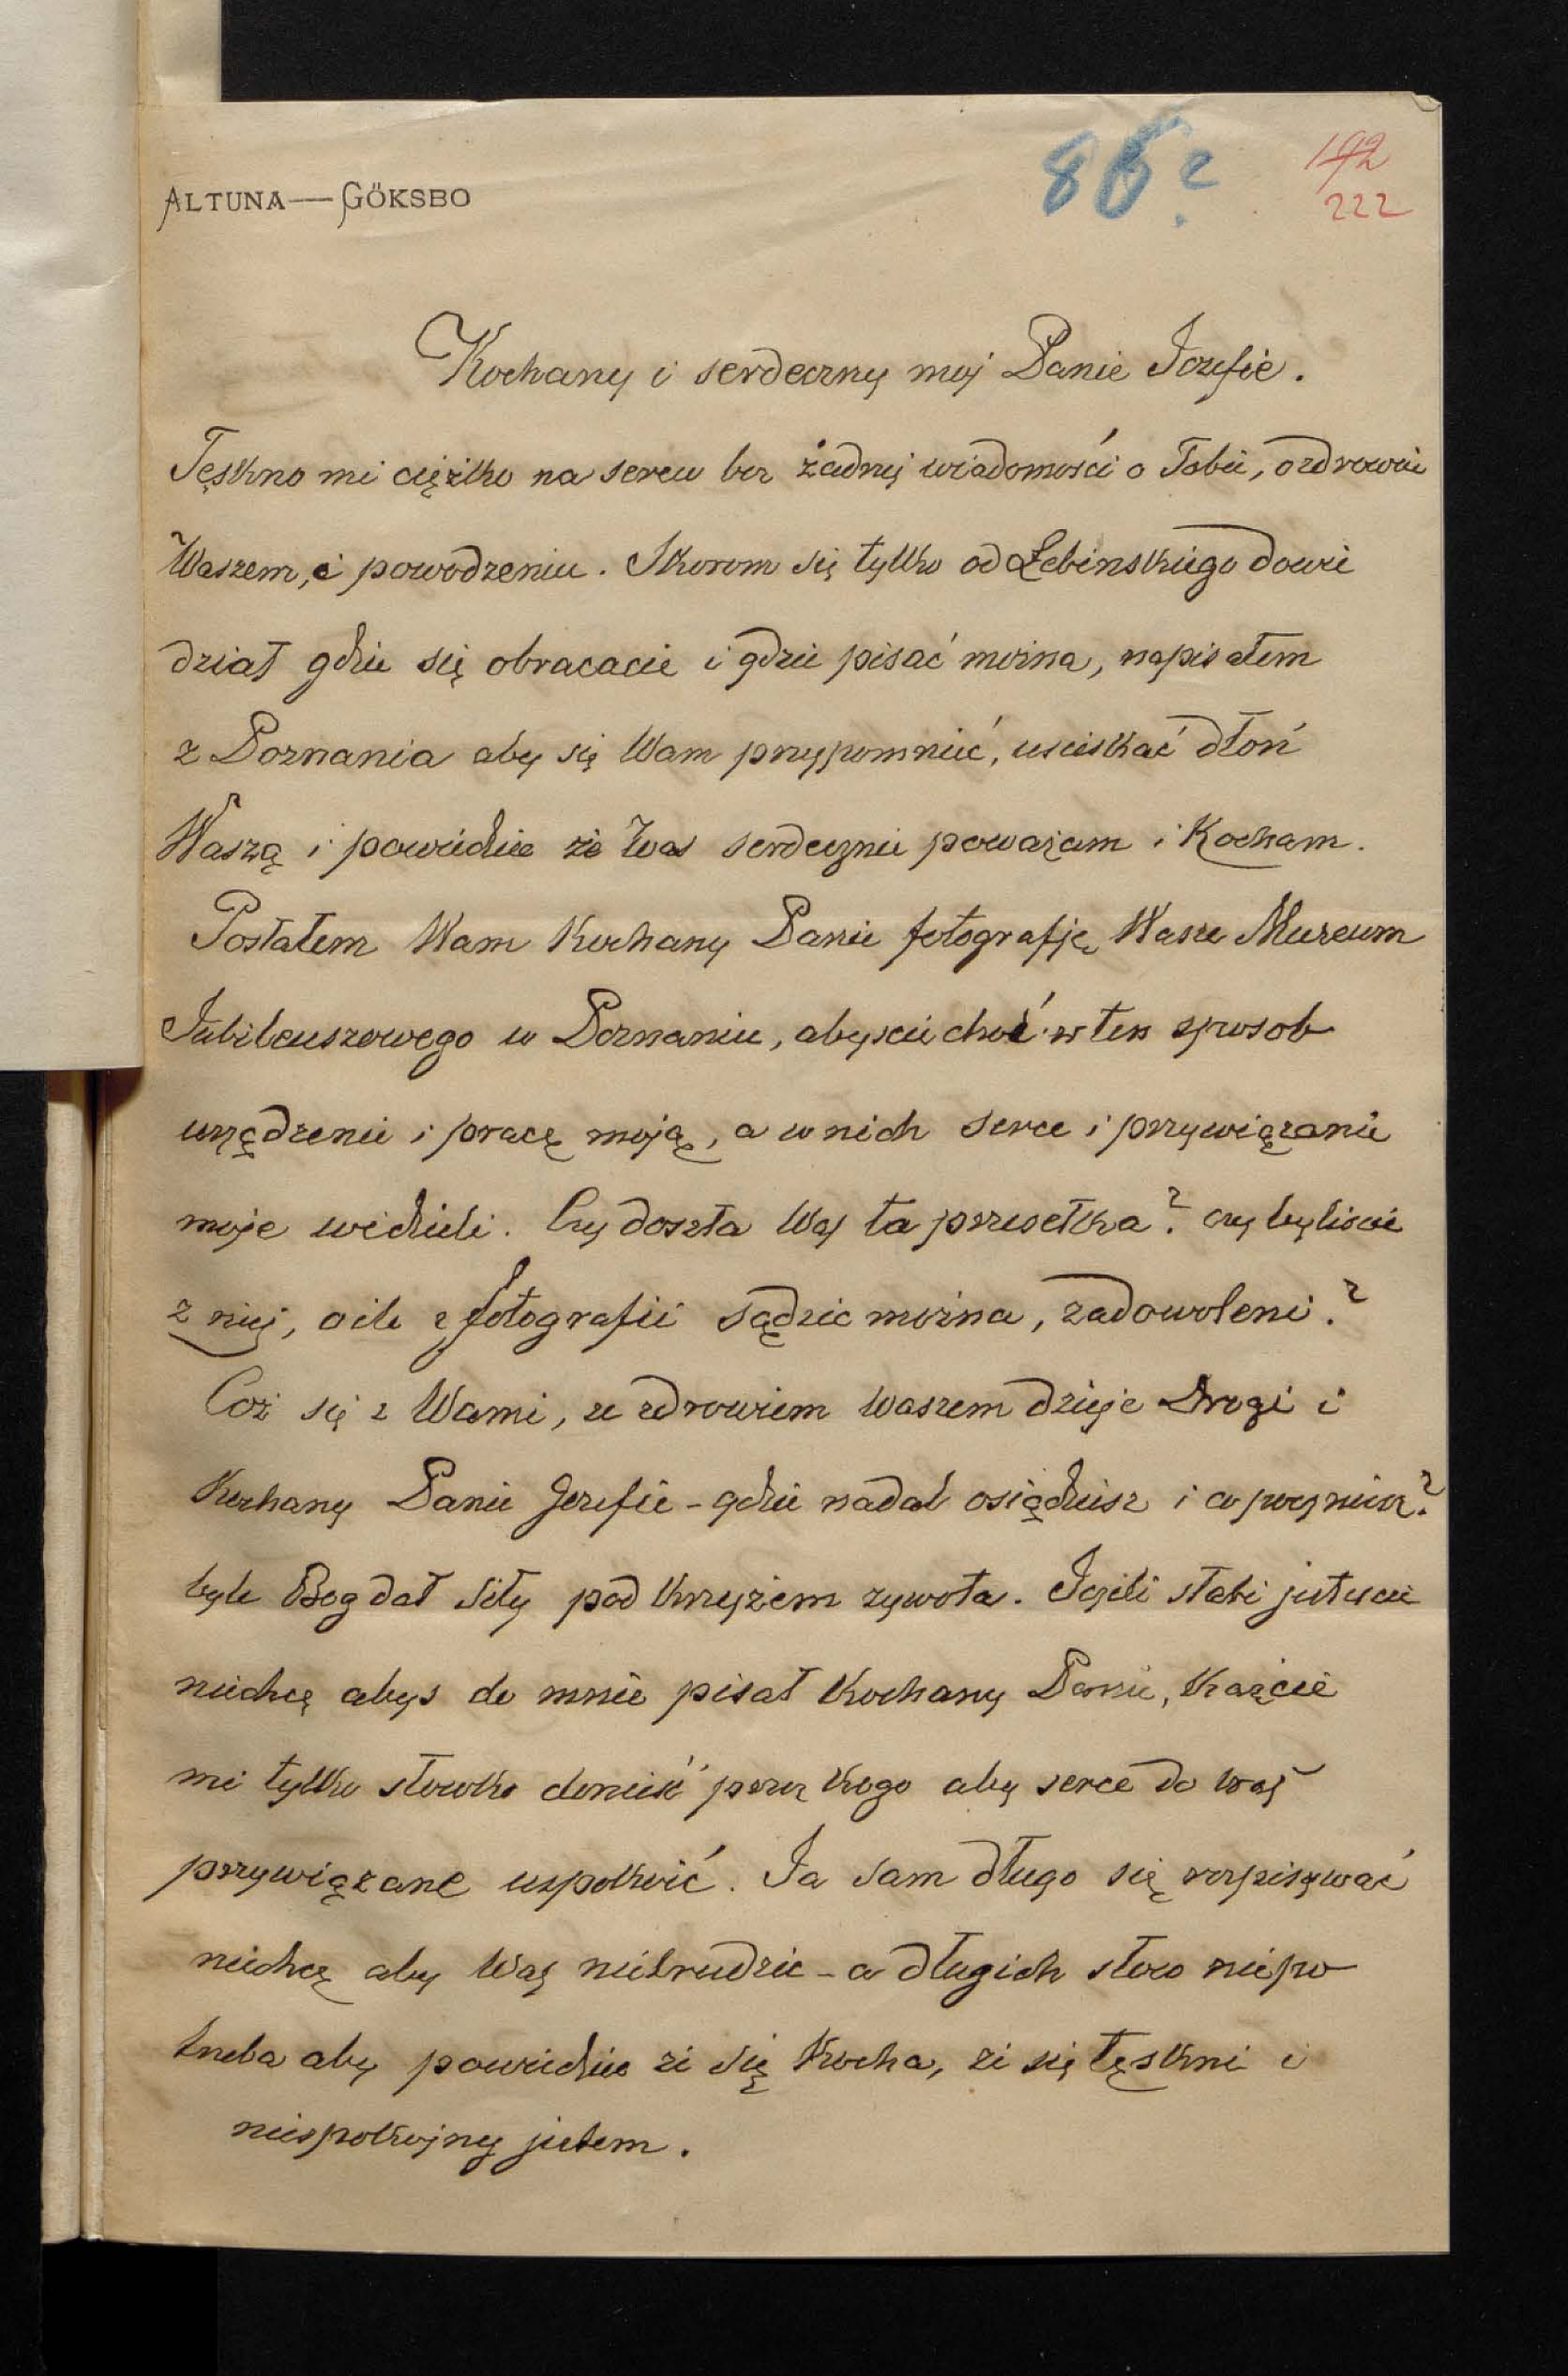 ALTUNA — GÖKSBO
86?
192
222
Kochany i serdeczny moj Panie Jozefie.
Tęskno mi ciężko na sercu bez żadnej wiadomości o Tobie, o zdrowiu
Waszem, i powodzeniu. Skorom się tylko od Łebinskiego dowie
dział gdzie się obracacie i gdzie pisać można, napisałem
z Poznania aby się Wam przypomnieć, usciskać dłoń
Waszą i powiedzieć że Was serdecznie poważam i Kocham.
Posłałem Wam Kochany Panie fotografję Wasze Muzeum
Jubileuszowego w Poznaniu, abyscie choć w ten sposob
urządzenie i pracę moją, a w nich serce i przywiązanie
moje widzieli. Czy doszła Was ta przesełka? czy byliscie
z niej, o ile z fotografii sądzic można, zadowoleni?
Coż się z Wami, ze zdrowiem waszem dzieje Drogi i
Kochany Panie Jozefie - gdzie nadal osiądziesz i co poczniesz?
byle Bog dał siły pod Krzyżem zywota. Jeżeli słabi jestescie
niechcę abys do mnie pisał Kochany Panie, Każcie
mi tylko słowko donieść przez Kogo aby serce do Was
przywiązane uspokoić. Ja sam długo się rozpisywać
niechcę aby Was nietrudzic - a długich słow niepo
trzeba aby powiedziec że się Kocha, że się tęskni i
niespokojny jestem.